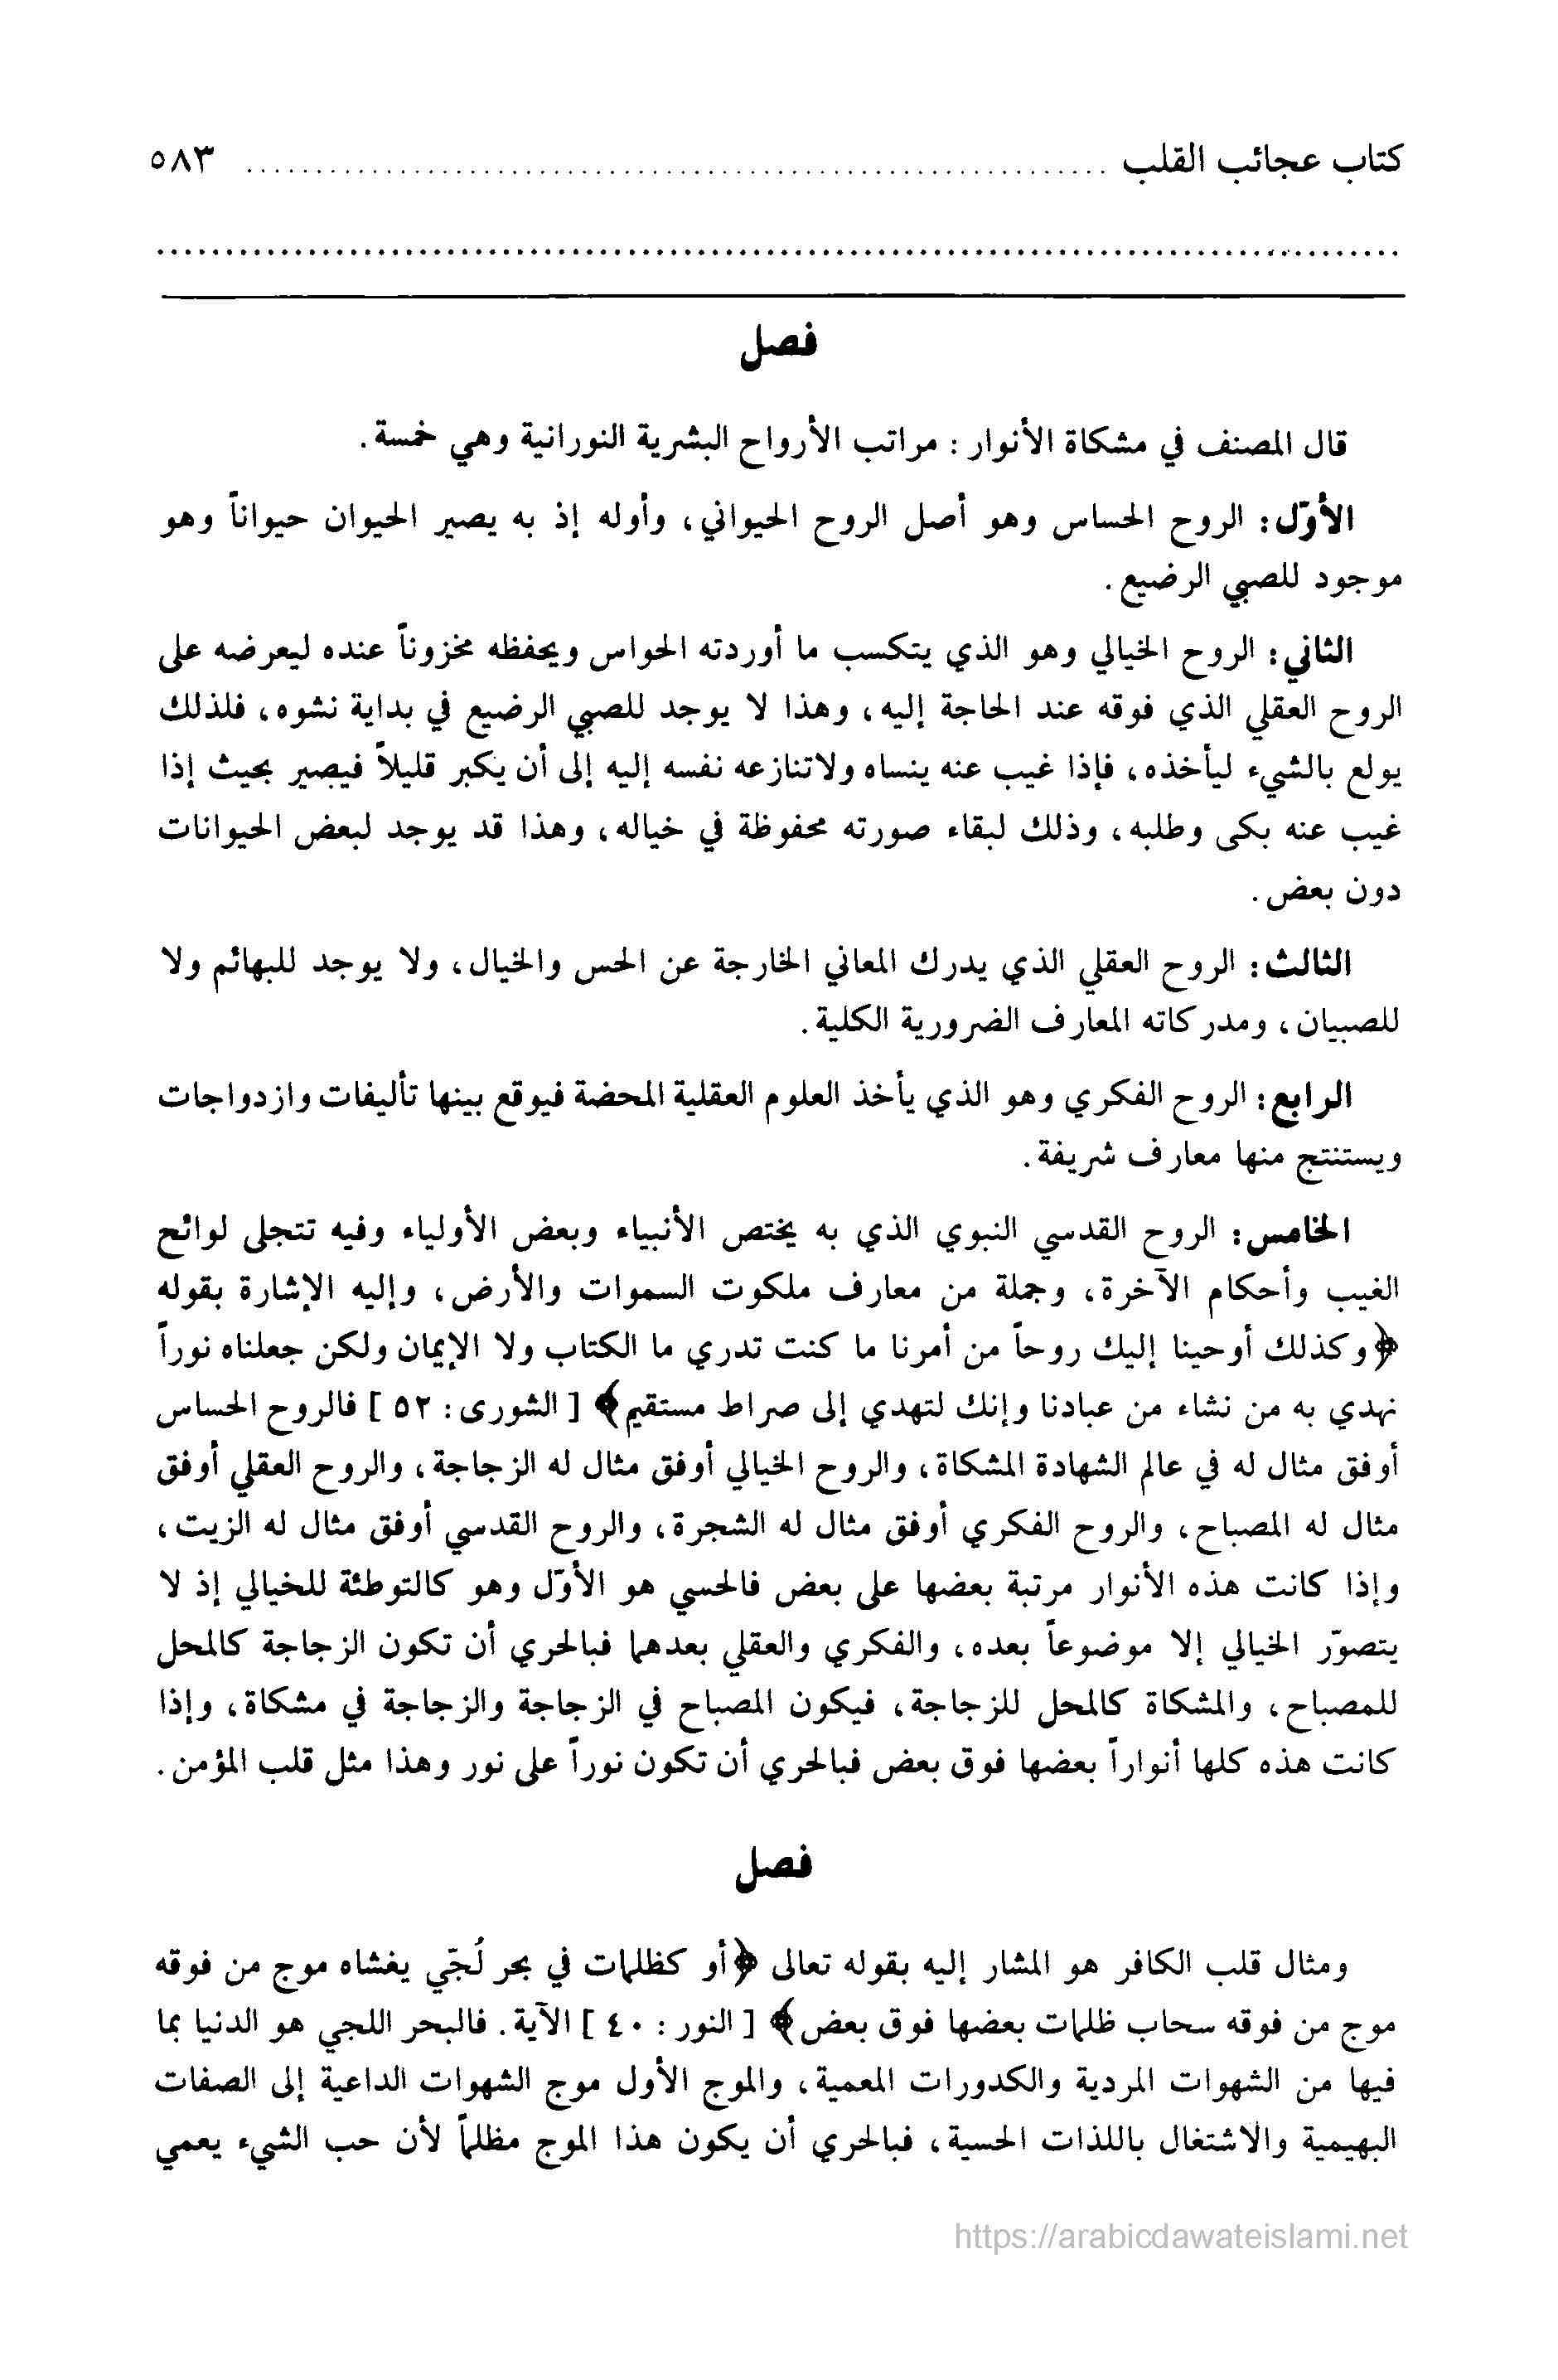 كتاب عجائب القلب ........................................................ ٥٨٣
..........................................................................................
فصل
قال المصنف في مشكاة الأنوار : مراتب الأرواح البشرية النورانية وهي خمسة .
الأوّل: الروح الحساس وهو أصل الروح الحيواني، وأوله إذ به يصير الحيوان حيواناً وهو
موجود للصبي الرضيع .
الثاني: الروح الخيالي وهو الذي يتكسب ما أوردته الحواس ويحفظه مخزوناً عنده ليعرضه على
الروح العقلي الذي فوقه عند الحاجة إليه، وهذا لا يوجد للصبي الرضيع في بداية نشوه، فلذلك
يولع بالشيء ليأخذه، فإذا غيب عنه ينساه ولاتنازعه نفسه إليه إلى أن يكبر قليلاً فيصير بحيث إذا
غيب عنه بكى وطلبه، وذلك لبقاء صورته محفوظة في خياله، وهذا قد يوجد لبعض الحيوانات
دون بعض .
الثالث: الروح العقلي الذي يدرك المعاني الخارجة عن الحس والخيال، ولا يوجد للبهائم ولا
للصبيان، ومدركاته المعارف الضرورية الكلية .
الرابع: الروح الفكري وهو الذي يأخذ العلوم العقلية المحضة فيوقع بينها تأليفات وازدواجات
ويستنتج منها معارف شريفة .
الخامس: الروح القدسي النبوي الذي به يختص الأنبياء وبعض الأولياء وفيه تتجلى لوائح
الغيب وأحكام الآخرة، وجملة من معارف ملكوت السموات والأرض، وإليه الإشارة بقوله
﴿وكذلك أوحينا إليك روحاً من أمرنا ما كنت تدري ما الكتاب ولا الإيمان ولكن جعلناه نوراً
نهدي به من نشاء من عبادنا وإنك لتهدي إلى صراط مستقيم﴾ [ الشورى: ٥٢ ] فالروح الحساس
أوفق مثال له في عالم الشهادة المشكاة، والروح الخيالي أوفق مثال له الزجاجة، والروح العقلي أوفق
مثال له المصباح، والروح الفكري أوفق مثال له الشجرة، والروح القدسي أوفق مثال له الزيت،
وإذا كانت هذه الأنوار مرتبة بعضها على بعض فالحسي هو الأوّل وهو كالتوطئة للخيالي إذ لا
يتصوّر الخيالي إلا موضوعاً بعده، والفكري والعقلي بعدهما فبالحري أن تكون الزجاجة كالمحل
للمصباح، والمشكاة كالمحل للزجاجة، فيكون المصباح في الزجاجة والزجاجة في مشكاة، وإذا
كانت هذه كلها أنواراً بعضها فوق بعض فبالحري أن تكون نوراً على نور وهذا مثل قلب المؤمن .
فصل
ومثال قلب الكافر هو المشار إليه بقوله تعالى ﴿أو كظلمات في بحر لُجّي يغشاه موج من فوقه
موج من فوقه سحاب ظلمات بعضها فوق بعض﴾ [ النور : ٤٠ ] الآية . فالبحر اللجي هو الدنيا بما
فيها من الشهوات المردية والكدورات المعمية، والموج الأول موج الشهوات الداعية إلى الصفات
البهيمية والاشتغال باللذات الحسية، فبالحري أن يكون هذا الموج مظلماً لأن حب الشيء يعمي
https://arabicdawateislami.net